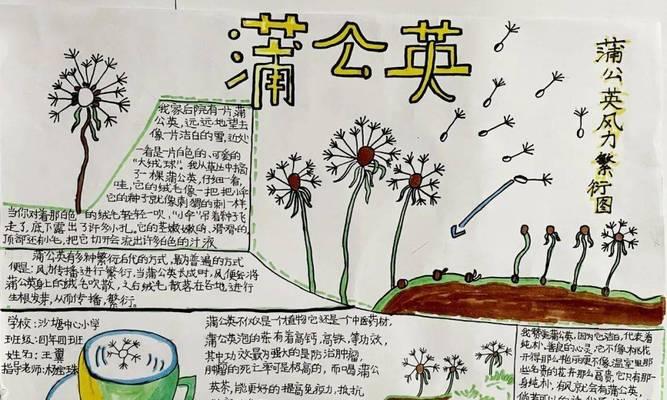 蒲公英
蒲公英风力繁衍图
我家后院有一片蒲
公英，远远地望去
像一片洁白的雪，近处
一看是一片白色的、可爱的
"大绒球"。我从草丛中摘
了一棵蒲公英，仔细一看，
哇，它的绒毛像一把把小伞
它的种子就像刺猬的刺一样，
当你对着那白色的绒毛轻轻一吹，"小伞"吊着种子飞
走了，底下露出了许多小孔。它的茎嫩嫩的，滑滑的
顶部还有小毛，把它切开会流出许多白色的汁液
蒲公英有多种繁衍后代的方式，最为普遍的方式
便是：风力传播进行繁衍。当蒲公英长成时，风便会将
蒲公英身上的绒毛吹散，之白绒毛散落在各地进行
生根发芽，从而传播，繁衍。
学校：沙塘中心小学
班级：四年四班
姓名：王
指导老师：杨
蒲公英不仅仅是一个植物它还是一个中医药材，
蒲公英泡的茶有着高钙，高铁，等功效，
其中功效最为强大的是防治肿瘤，
肿瘤的死亡率可是极高的，而喝蒲公
英茶，能更好的提高免疫力，抵抗
我赞美蒲公英，因为它洁白，代表着
纯朴，善良的心灵，它不像有的花
开得那么艳丽便不像温室里那
些名贵的花卉那么高贵，它只有那
一身纯朴，有风就会有蒲公英，